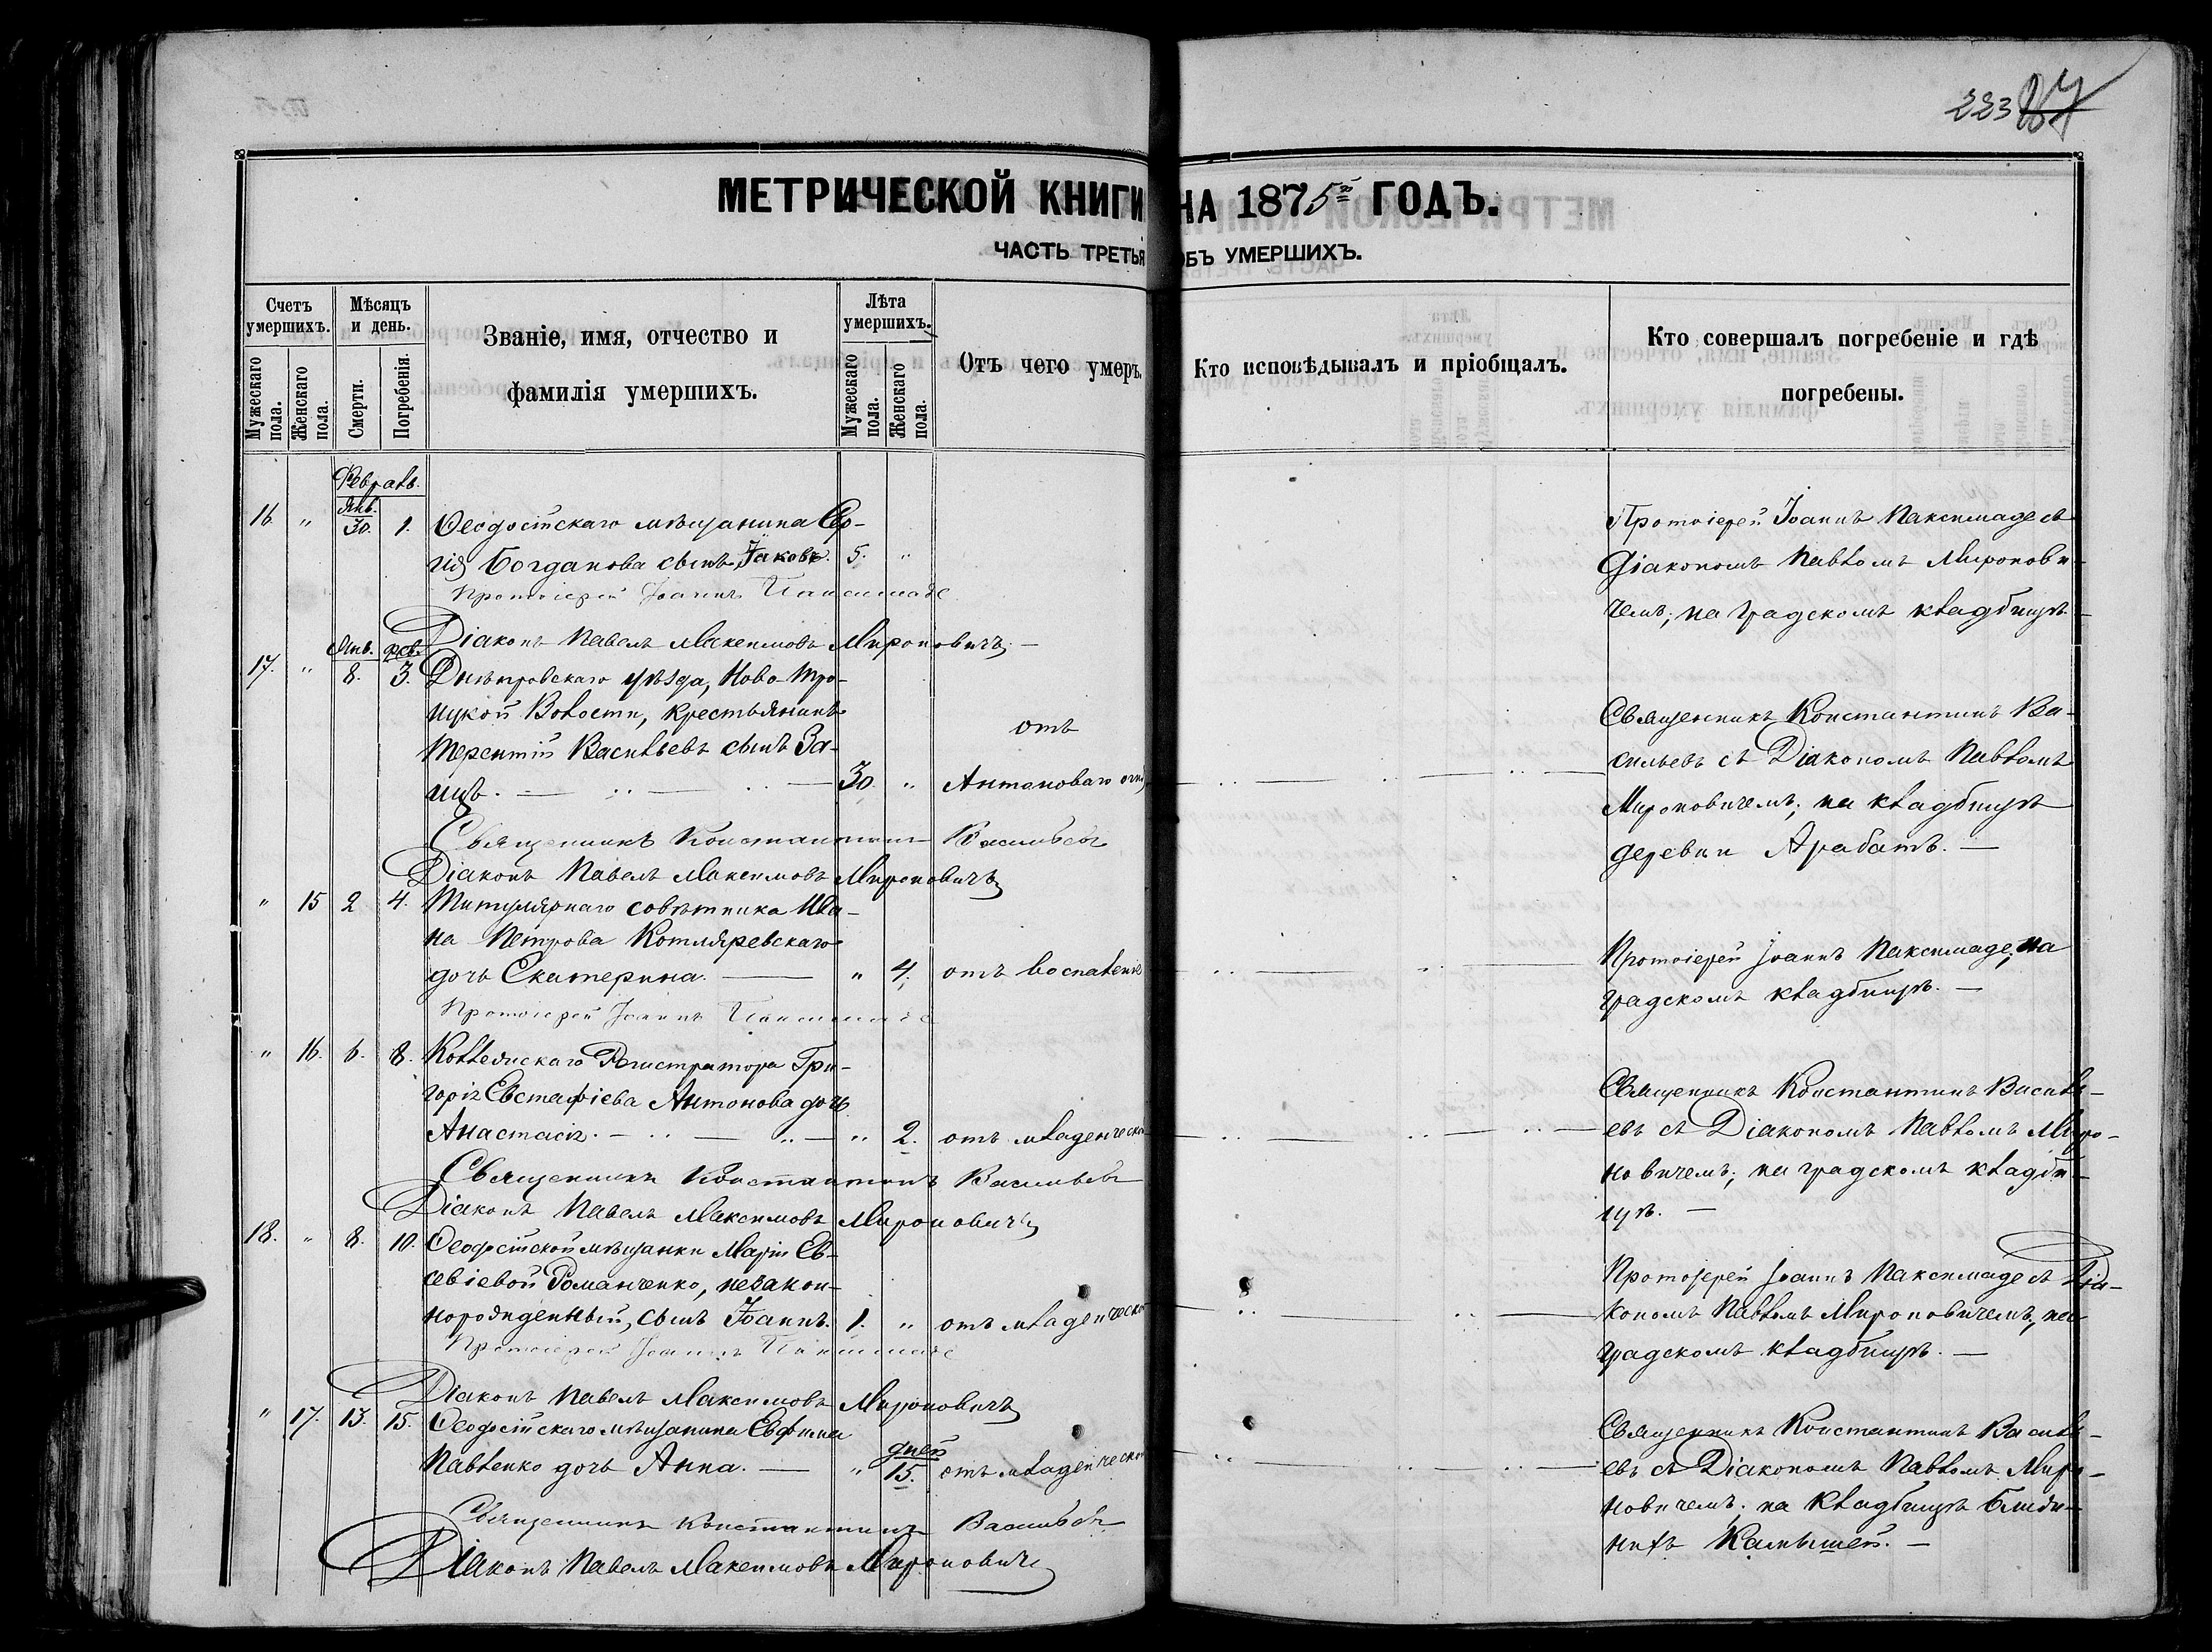 223 87
МЕТРИЧЕСКОЙ КНИГИ НА 1875й ГОДЪ.
ЧАСТЬ ТРЕТЬЯ ОБЪ УМЕРШИХЪ.
Счетъ умершихъ.
Мужескаго пола.
Женскаго пола.
Мѣсяцъ и день.
Смерти.
Погребенія.
Званіе, имя, отчество и
фамилія умершихъ.
Лѣта умершихъ.
Мужескаго пола.
Женскаго пола.
Отъ чего умеръ.
Кто исповѣдывалъ и пріобщалъ.
Кто совершалъ погребеніе и гдѣ
погребены.
Февраль.
16. " Янв. 30. 1. Ѳеодосійскаго мѣщанина Сер-
гія Богданова сынъ Іаковъ. 5. "
Протоіерей Іоаннъ Паксимаде
Діаконъ Павелъ Максимовъ Мироновичъ
Протоіерей Іоаннъ Паксимаде съ
Діакономъ Павломъ Миронови-
чемъ; на градскомъ кладбищѣ.
17. " Янв. 8. фев. 3. Днѣпровскаго уѣзда, Ново-Тро-
ицкой Волости, крестьянинъ
Терентій Васильевъ сынъ За-
яцъ. 30. " отъ Антоноваго огня
Священникъ Константинъ Васильевъ
Діаконъ Павелъ Максимовъ Мироновичъ
Священникъ Константинъ Ва-
сильевъ съ Діакономъ Павломъ
Мироновичемъ; на кладбищѣ
деревни Арабатъ.
" 15 2 4. Титулярнаго совѣтника Ива-
на Петрова Котляревскаго
дочь Екатерина. " 4. отъ воспаленія
Протоіерей Іоаннъ Паксимаде
Протоіерей Іоаннъ Паксимаде, на
градскомъ кладбищѣ.
" 16. 6. 8. Коллежскаго Регистратора Гри-
горія Евстафіева Антонова дочь
Анастасія. " 2. отъ младенческой
Священникъ Константинъ Васильевъ
Діаконъ Павелъ Максимовъ Мироновичъ
Священникъ Константинъ Василь-
евъ съ Діакономъ Павломъ Миро-
новичемъ; на градскомъ кладби-
щѣ.
18. " 8. 10. Ѳеодосійской мѣщанки Маріи Ев-
севіевой Романченко, незакон-
норожденный, сынъ Іоаннъ. 1. " отъ младенческой
Протоіерей Іоаннъ Паксимаде
Діаконъ Павелъ Максимовъ Мироновичъ
Протоіерей Іоаннъ Паксимаде съ Діа-
кономъ Павломъ Мироновичемъ, на
градскомъ кладбищѣ.
" 17. 13. 15. Ѳеодосійскаго мѣщанина Евфима
Павленко дочь Анна. " дней 15. отъ младенческой
Священникъ Константинъ Васильевъ
Діаконъ Павелъ Максимовъ Мироновичъ
Священникъ Константинъ Василь-
евъ съ Діакономъ Павломъ Миро-
новичемъ; на кладбищѣ ближ-
нихъ Камышей.